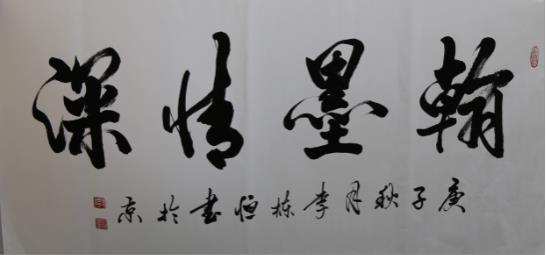 翰墨情深
庚子秋月李栋恒书于京